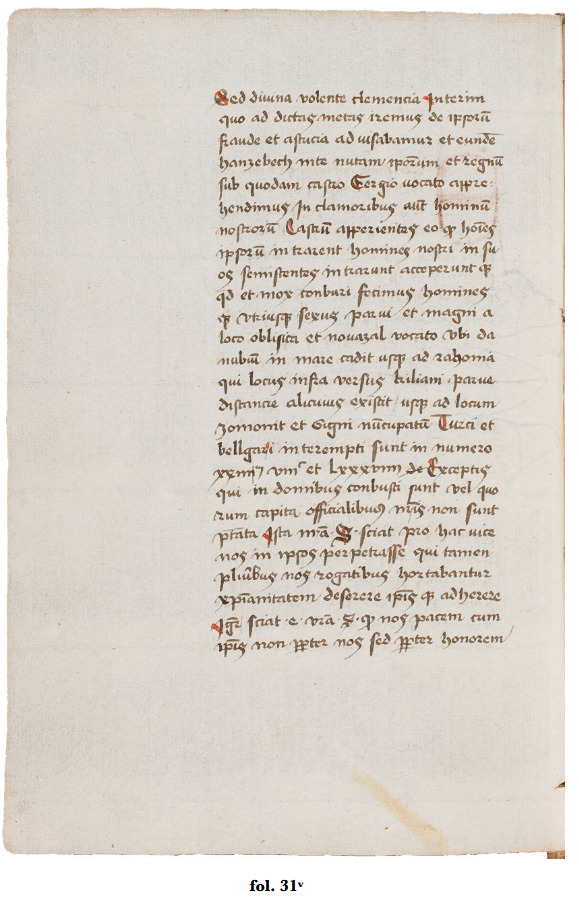 Sed diuina volente clemencia Interim
quo ad dictas metas iremus de ip̄orū
fraude et astucia ad visabamur et eundē
hanzebech inte nutam ip̄orum et regnū
sub quodam castro Gergio vocato appre:
hendimus In clamoribus aūt hominū
nostrorū Castrū apperientes eo qꝫ hōīes
ip̄sorū in trarent homines nostri in su
os semistentes in trarunt acceperunt qꝫ
qd et mox conburi fecimus homines
qꝫ vtriusqꝫ sexus parui et magni a
loco oblisica et nouazal vocato vbi da
nubiū in mare cadit usqꝫ ad rahoma
qui locus infra versus kiliam parue
distancie alicuius existit usqꝫ ad locum
zomonit et Gigni nūcupatū Turci et
bellgari interempti sunt in numero
xxiii viiiᶜ et Lxxxviii de Exceptis
qui in domibus conbusti sunt vel quo
rum capita officialibus nr̄is non sunt
pn̄tata Ista vr̄a · S · sciat pro hac vice
nos in ipsos perpetrasse qui tamen
pluribus nos rogatibus hortabantur
xp̄ianitatem deserere ip̄is qꝫ adherere
Igr̄ sciat · e · vr̄a · S · qꝫ nos pacem cum
ip̄is non ꝓpter nos sed ꝓpter honorem
fol. 31ᵛ